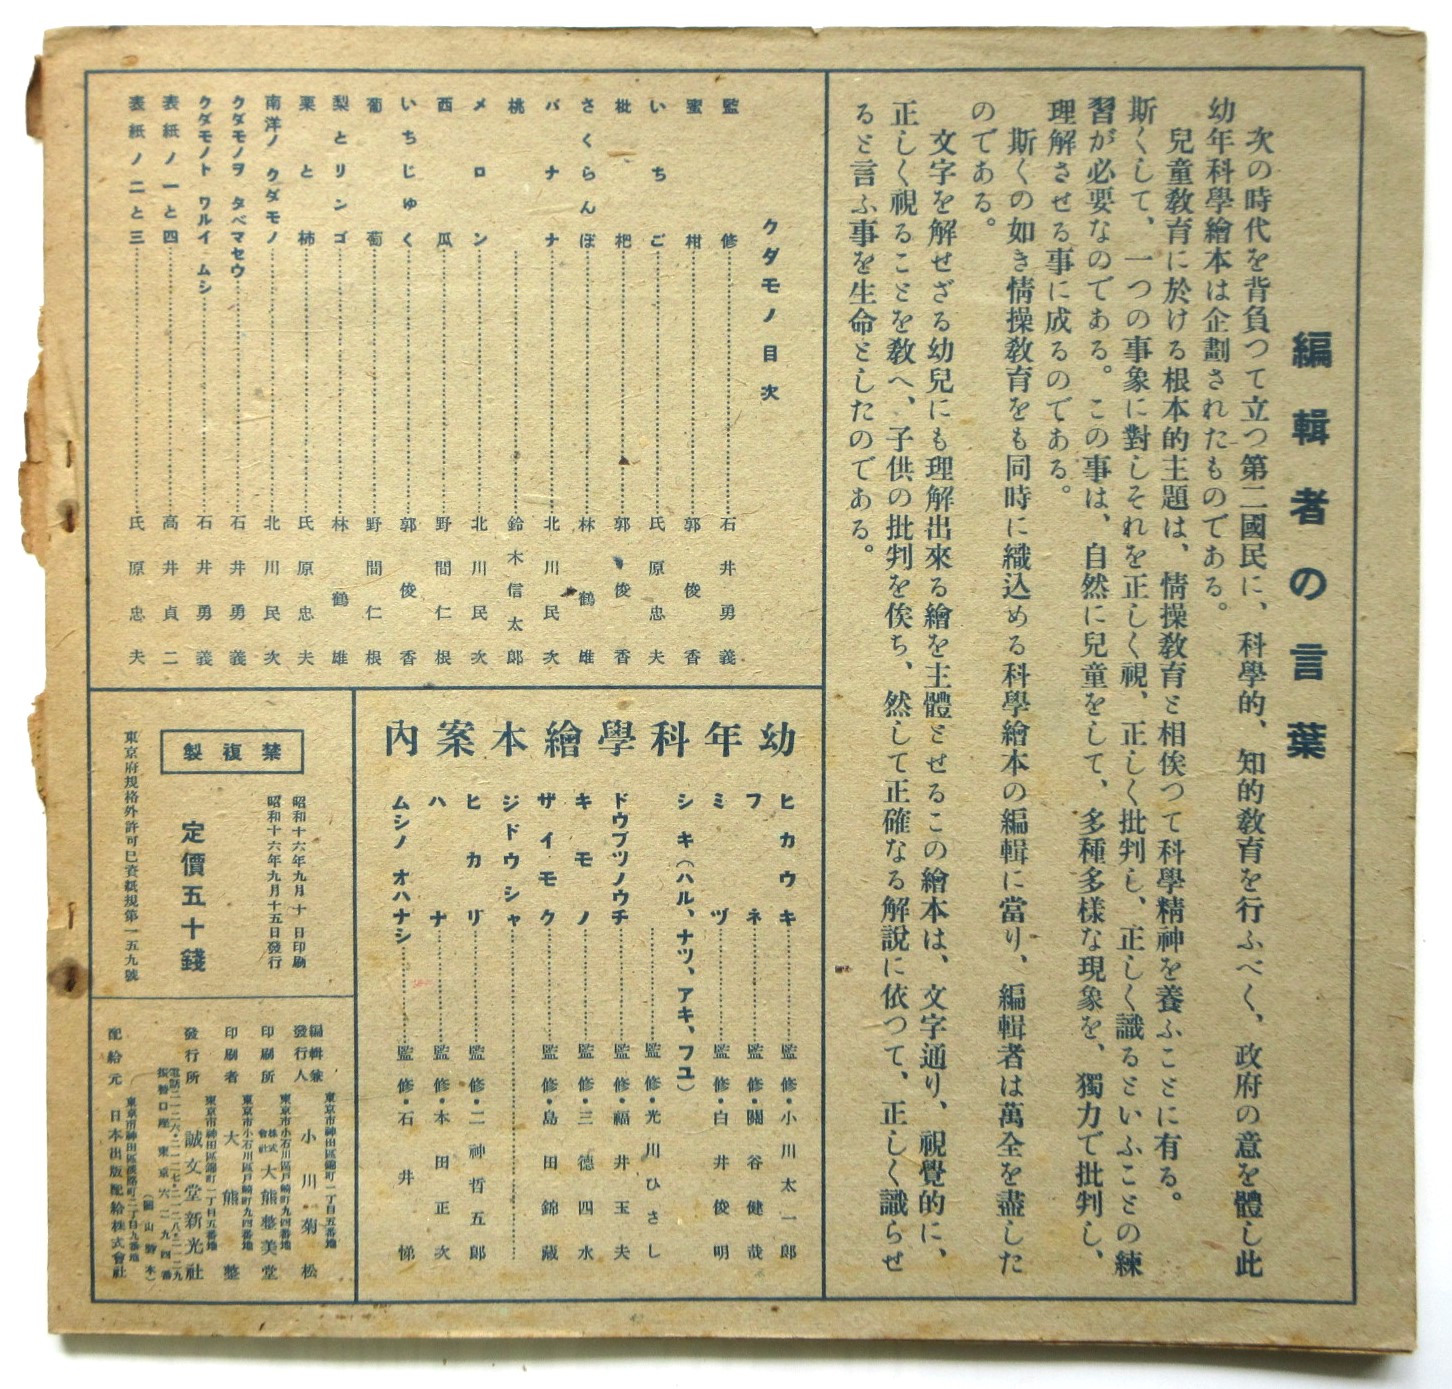 編輯者の言葉
次の時代を背負つて立つ第二國民に、科學的、知的敎育を行ふべく、政府の意を體し此
幼年科學繪本は企劃されたものである。
兒童敎育に於ける根本的主題は、情操敎育と相俟つて科學精神を養ふことに有る。
斯くして、一つの事象に對しそれを正しく視、正しく批判し、正しく識るといふことの練
習が必要なのである。この事は、自然に兒童をして、多種多樣な現象を、獨力で批判し、
理解させる事に成るのである。
斯くの如き情操敎育をも同時に織込める科學繪本の編輯に當り、編輯者は萬全を盡した
のである。
文字を解せざる幼兒にも理解出來る繪を主體とせるこの繪本は、文字通り、視覺的に、
正しく視ることを敎へ、子供の批判を俟ち、然して正確なる解說に依つて、正しく識らせ
ると言ふ事を生命としたのである。
クダモノ目次
監修 石井勇義
蜜柑 郭俊香
いちご 氏原忠夫
枇杷 郭俊香
さくらんぼ 林鶴雄
バナナ 北川民次
桃 鈴木信太郎
メロン 北川民次
西瓜 野間仁根
いちじゅく 郭俊香
葡萄 野間仁根
梨とリンゴ 林鶴雄
栗と柿 氏原忠夫
南洋ノクダモノ 北川民次
クダモノヲ タベマセウ 石井勇義
クダモノト ワルイ ムシ 石井勇義
表紙ノ一と四 高井貞二
表紙ノ二と三 氏原忠夫
幼年科學繪本案內
ヒカウキ 監修・小川太一郎
フネ 監修・關谷健哉
ミヅ 監修・白井俊明
シキ(ハル、ナツ、アキ、フユ)
監修・光川ひさし
ドウブツノウチ 監修・福井玉夫
キモノ 監修・三德四水
ザイモク 監修・島田錦藏
ジドウシャ
ヒカリ 監修・二神哲五郎
ハナ 監修・本田正次
ムシノ オハナシ 監修・石井悌
禁複製
昭和十六年九月十日印刷
昭和十六年九月十五日發行
定價五十錢
東京府規格外許可巳查紙規第一五九號
東京市神田區錦町一丁目五番地
編輯兼發行人 小川菊松
東京市小石川區戶崎町九四番地
印刷所 株式會社 大熊整美堂
東京市小石川區戶崎町九四番地
印刷者 大熊整
東京市神田區錦町一丁目五番地
發行所 誠文堂新光社
電話二一二六・二一二七・二一二八・二一二九
振替口座東京六二九四番
東京市神田區淡路町二丁目九番地
配給元 日本出版配給株式會社